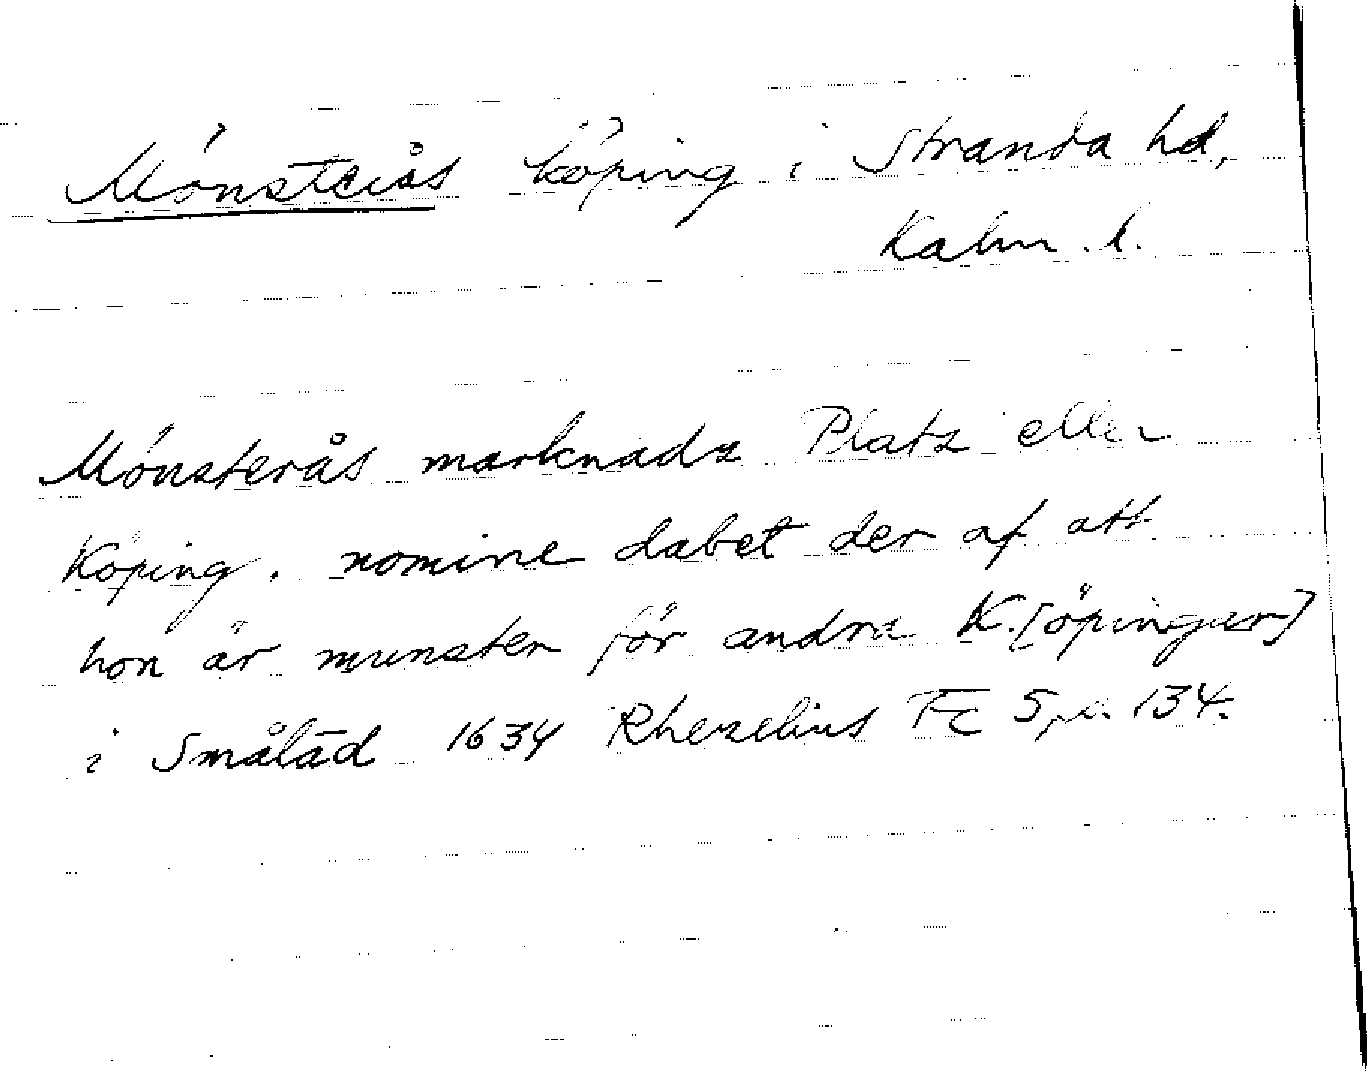 Mönsterås köping i Stranda hd,
Kalm. l.
Mönsterås marknads Plats eller
Köping. nomine dabet der af att
hon är munster för andra K.[öpingar]
i Småläd 1634 Rhezelius Fc 5, s. 134.